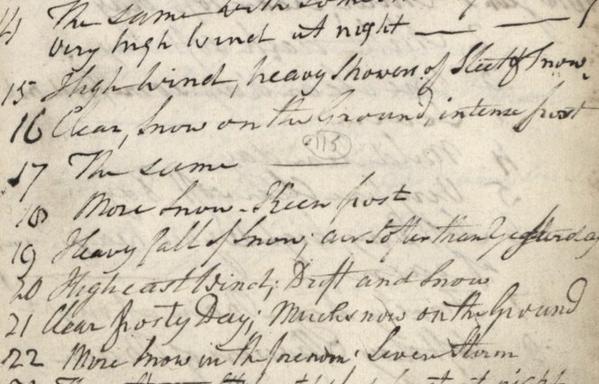 14 The same with some
very high wind at night
15 High wind, heavy showers of Sleet & Snow
16 Clear, Snow on the Ground, intense frost
115
17 The same
18 More Snow - Keen frost
19 Heavy fall of Snow; air softer than Yesterday
20 High east Wind; Drift and Snow
21 Clear frosty Day; Much snow on the Ground
22 More Snow in the forenoon: Storm
The